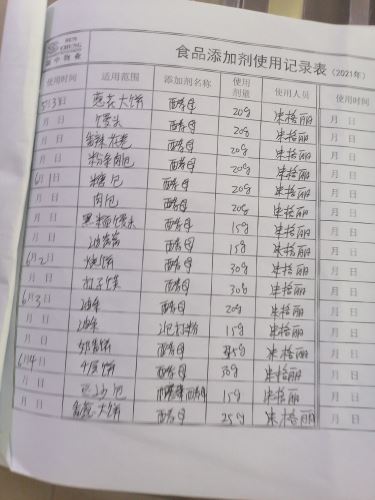 SHUN CHUNG
顺中物业
食品添加剂使用记录表（2021年）
使用时间 适用范围 添加剂名称 使用剂量 使用人员 使用时间
5月31日 葱花大饼 酵母 20g 朱格丽 月 日
月 日 馒头 酵母 20g 朱格丽 月 日
月 日 花卷 酵母 20g 朱格丽 月 日
月 日 粉条肉包 酵母 20g 朱格丽 月 日
6月1日 糖包 酵母 20g 朱格丽 月 日
月 日 肉包 酵母 20g 朱格丽 月 日
月 日 黑米馒头 酵母 15g 朱格丽 月 日
月 日 酵母 15g 朱格丽 月 日
6月2日 烧饼 酵母 30g 朱格丽 月 日
月 日 酵母 30g 朱格丽 月 日
6月3日 油条 酵母 20g 朱格丽 月 日
月 日 油条 泡打粉 15g 朱格丽 月 日
月 日 酵母 朱格丽 月 日
6月4日 千层饼 酵母 30g 朱格丽 月 日
月 日 豆沙包 酵母 15g 朱格丽 月 日
月 日 大饼 酵母 25g 朱格丽 月 日